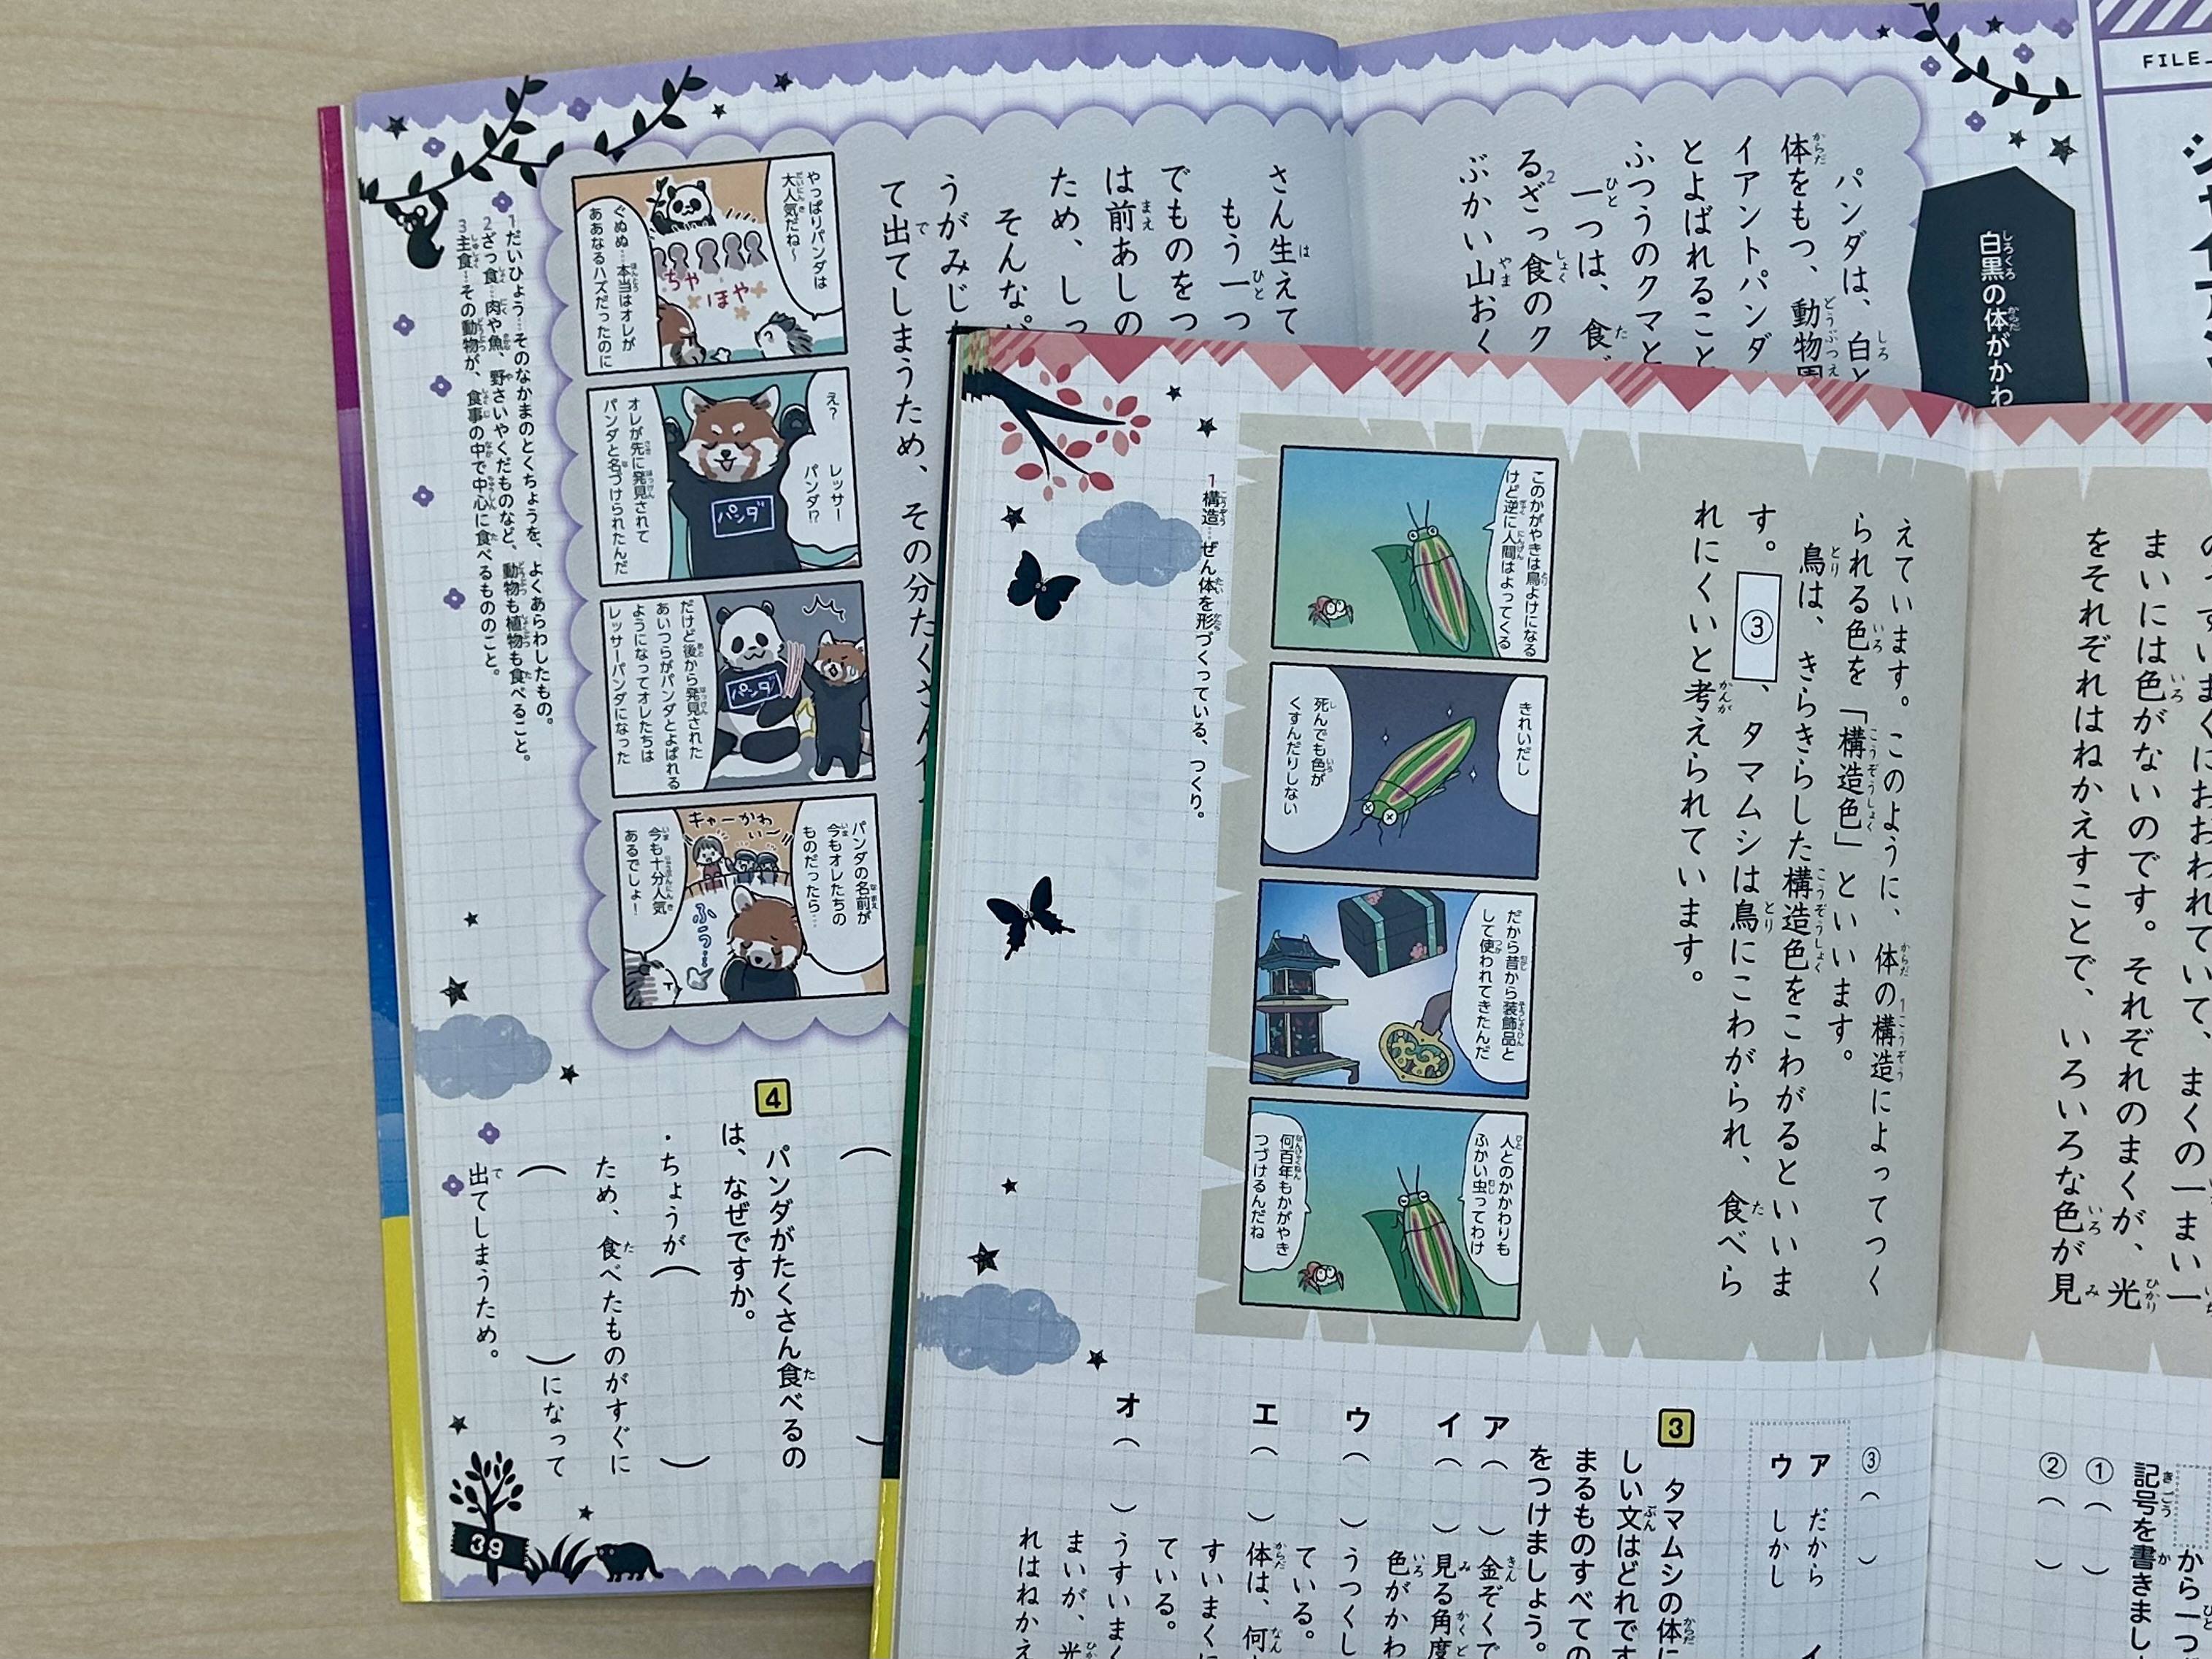 FILE
白黒の体がかわ
パンダは、白と
体をもつ、動物園
イアントパンダ
とよばれること
ふつうのクマと
一つは、食べ
るざっ食のク
ぶかい山おく
さん生えて
もう一つ
でものをつ
は前あしの
ため、しっ
そんなパ
うがみじか
て出てしまうため、その分たくさん
やっぱりパンダは
大人気だね〜
ちや
ほや
ぐぬぬ…本当はオレが
ああなるハズだったのに
え?
レッサー
パンダ!?
パンダ
オレが先に発見されて
パンダと名づけられたんだ
パンダ
だけど後から発見された
あいつらがパンダとよばれる
ようになってオレたちは
レッサーパンダになった
パンダの名前が
今もオレたちの
ものだったら…
キャーかわ
いい〜
ふう…
今も十分人気
あるでしょ!
1だいひょう…そのなかまのとくちょうを、よくあらわしたもの。
2ざっ食…肉や魚、野さいやくだものなど、動物も植物も食べること。
3主食…その動物が、食事の中で中心に食べるもののこと。
4
パンダがたくさん食べるの
は、なぜですか。
・ちょうが( )
ため、食べたものがすぐに
( )になって
出てしまうため。
39
まくにおおわれていて、まくの一まい一
まいには色がないのです。それぞれのまくが、光
をそれぞれはねかえすことで、いろいろな色が見
えています。このように、体の構造によってつく
られる色を「構造色」といいます。
鳥は、きらきらした構造色をこわがるといいま
す。③、タマムシは鳥にこわがられ、食べら
れにくいと考えられています。
このかがやきは鳥よけになる
けど逆に人間はよってくる
きれいだし
死んでも色が
くすんだりしない
だから昔から装飾品と
して使われてきたんだ
人とのかかわりも
ふかい虫ってわけ
何百年もかがやき
つづけるんだね
1構造…ぜん体を形づくっている、つくり。
から一つ
記号を書きまし
①( )
②( )
③( )
ア だから イ
ウ しかし
3
タマムシの体に
しい文はどれです
まるものすべての
をつけましょう。
ア( )金ぞくで
イ( )見る角度
色がかわ
ウ( )うつくし
ている。
エ( )体は、何
すいまくに
ている。
オ( )うすいまく
まいが、光
れはねかえ